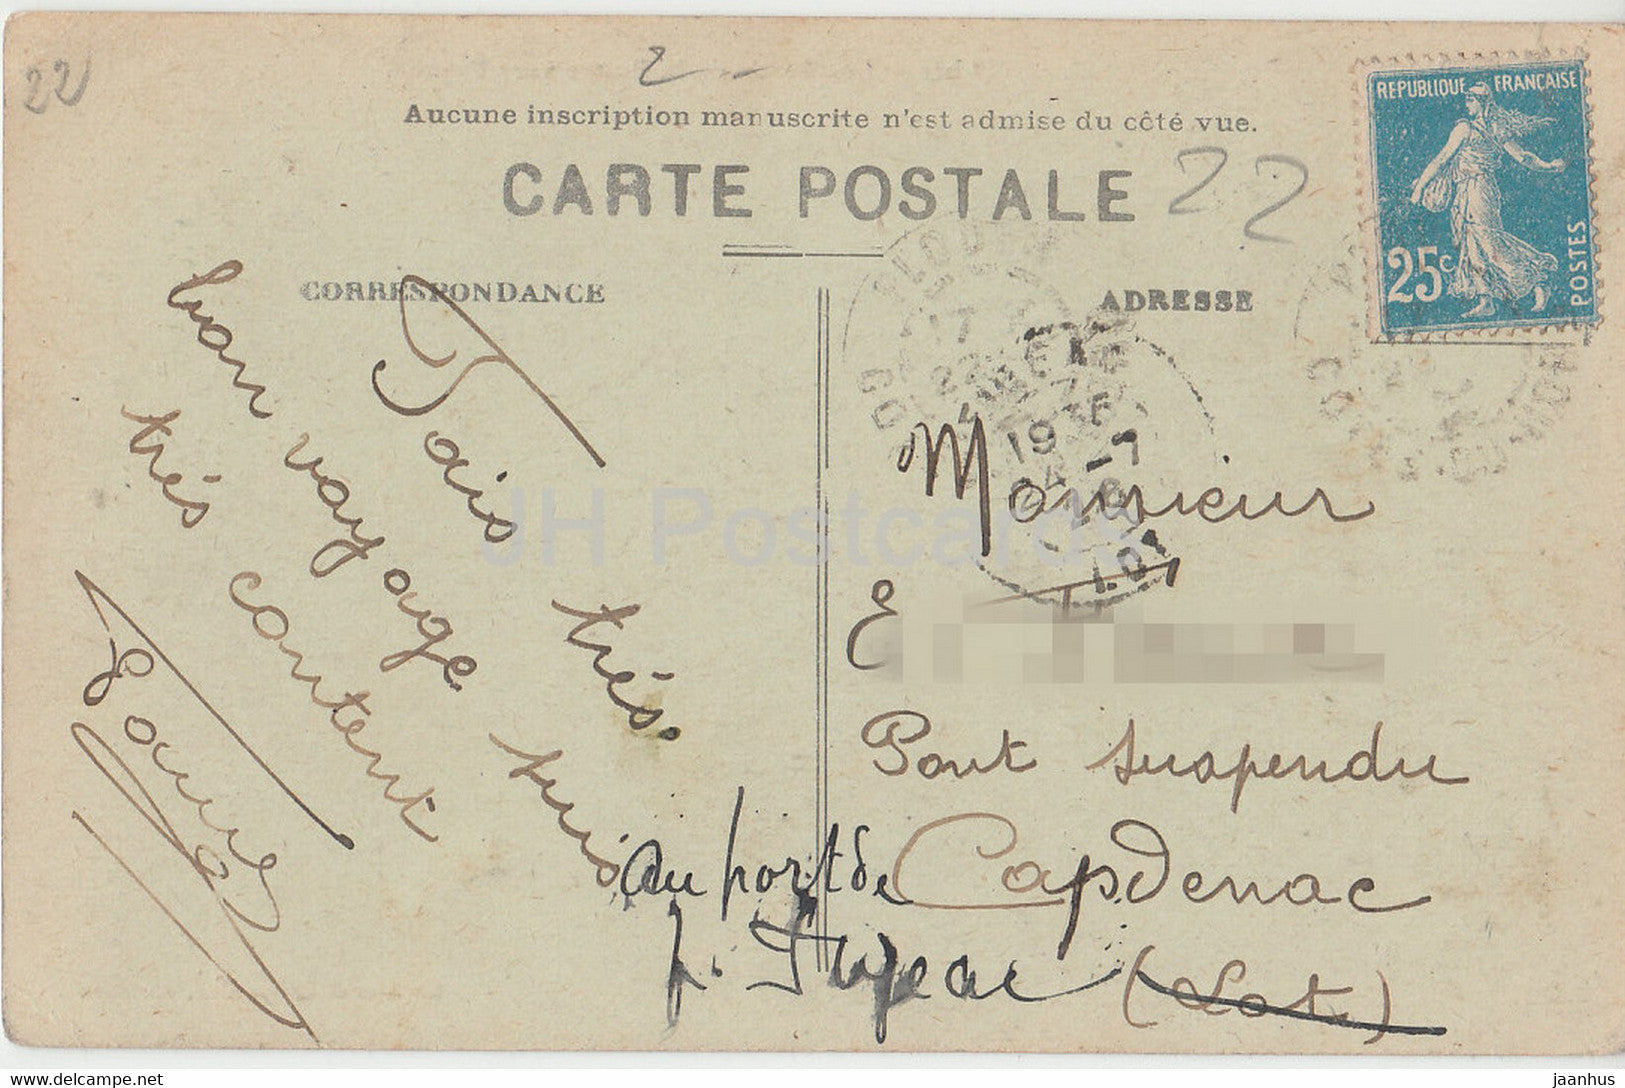 22
2 -
Aucune inscription manuscrite n'est admise du côté vue.
CARTE POSTALE
22
REPUBLIQUE FRANÇAISE
25c
POSTES
CORRESPONDANCE
ADRESSE
Fais très
bon voyage suis
très content
Monsieur
E
Pont suspendu
au port de Capdenac
p. Figeac (Lot)
LOT
JH Postcards
delcampe.net
jaanhus